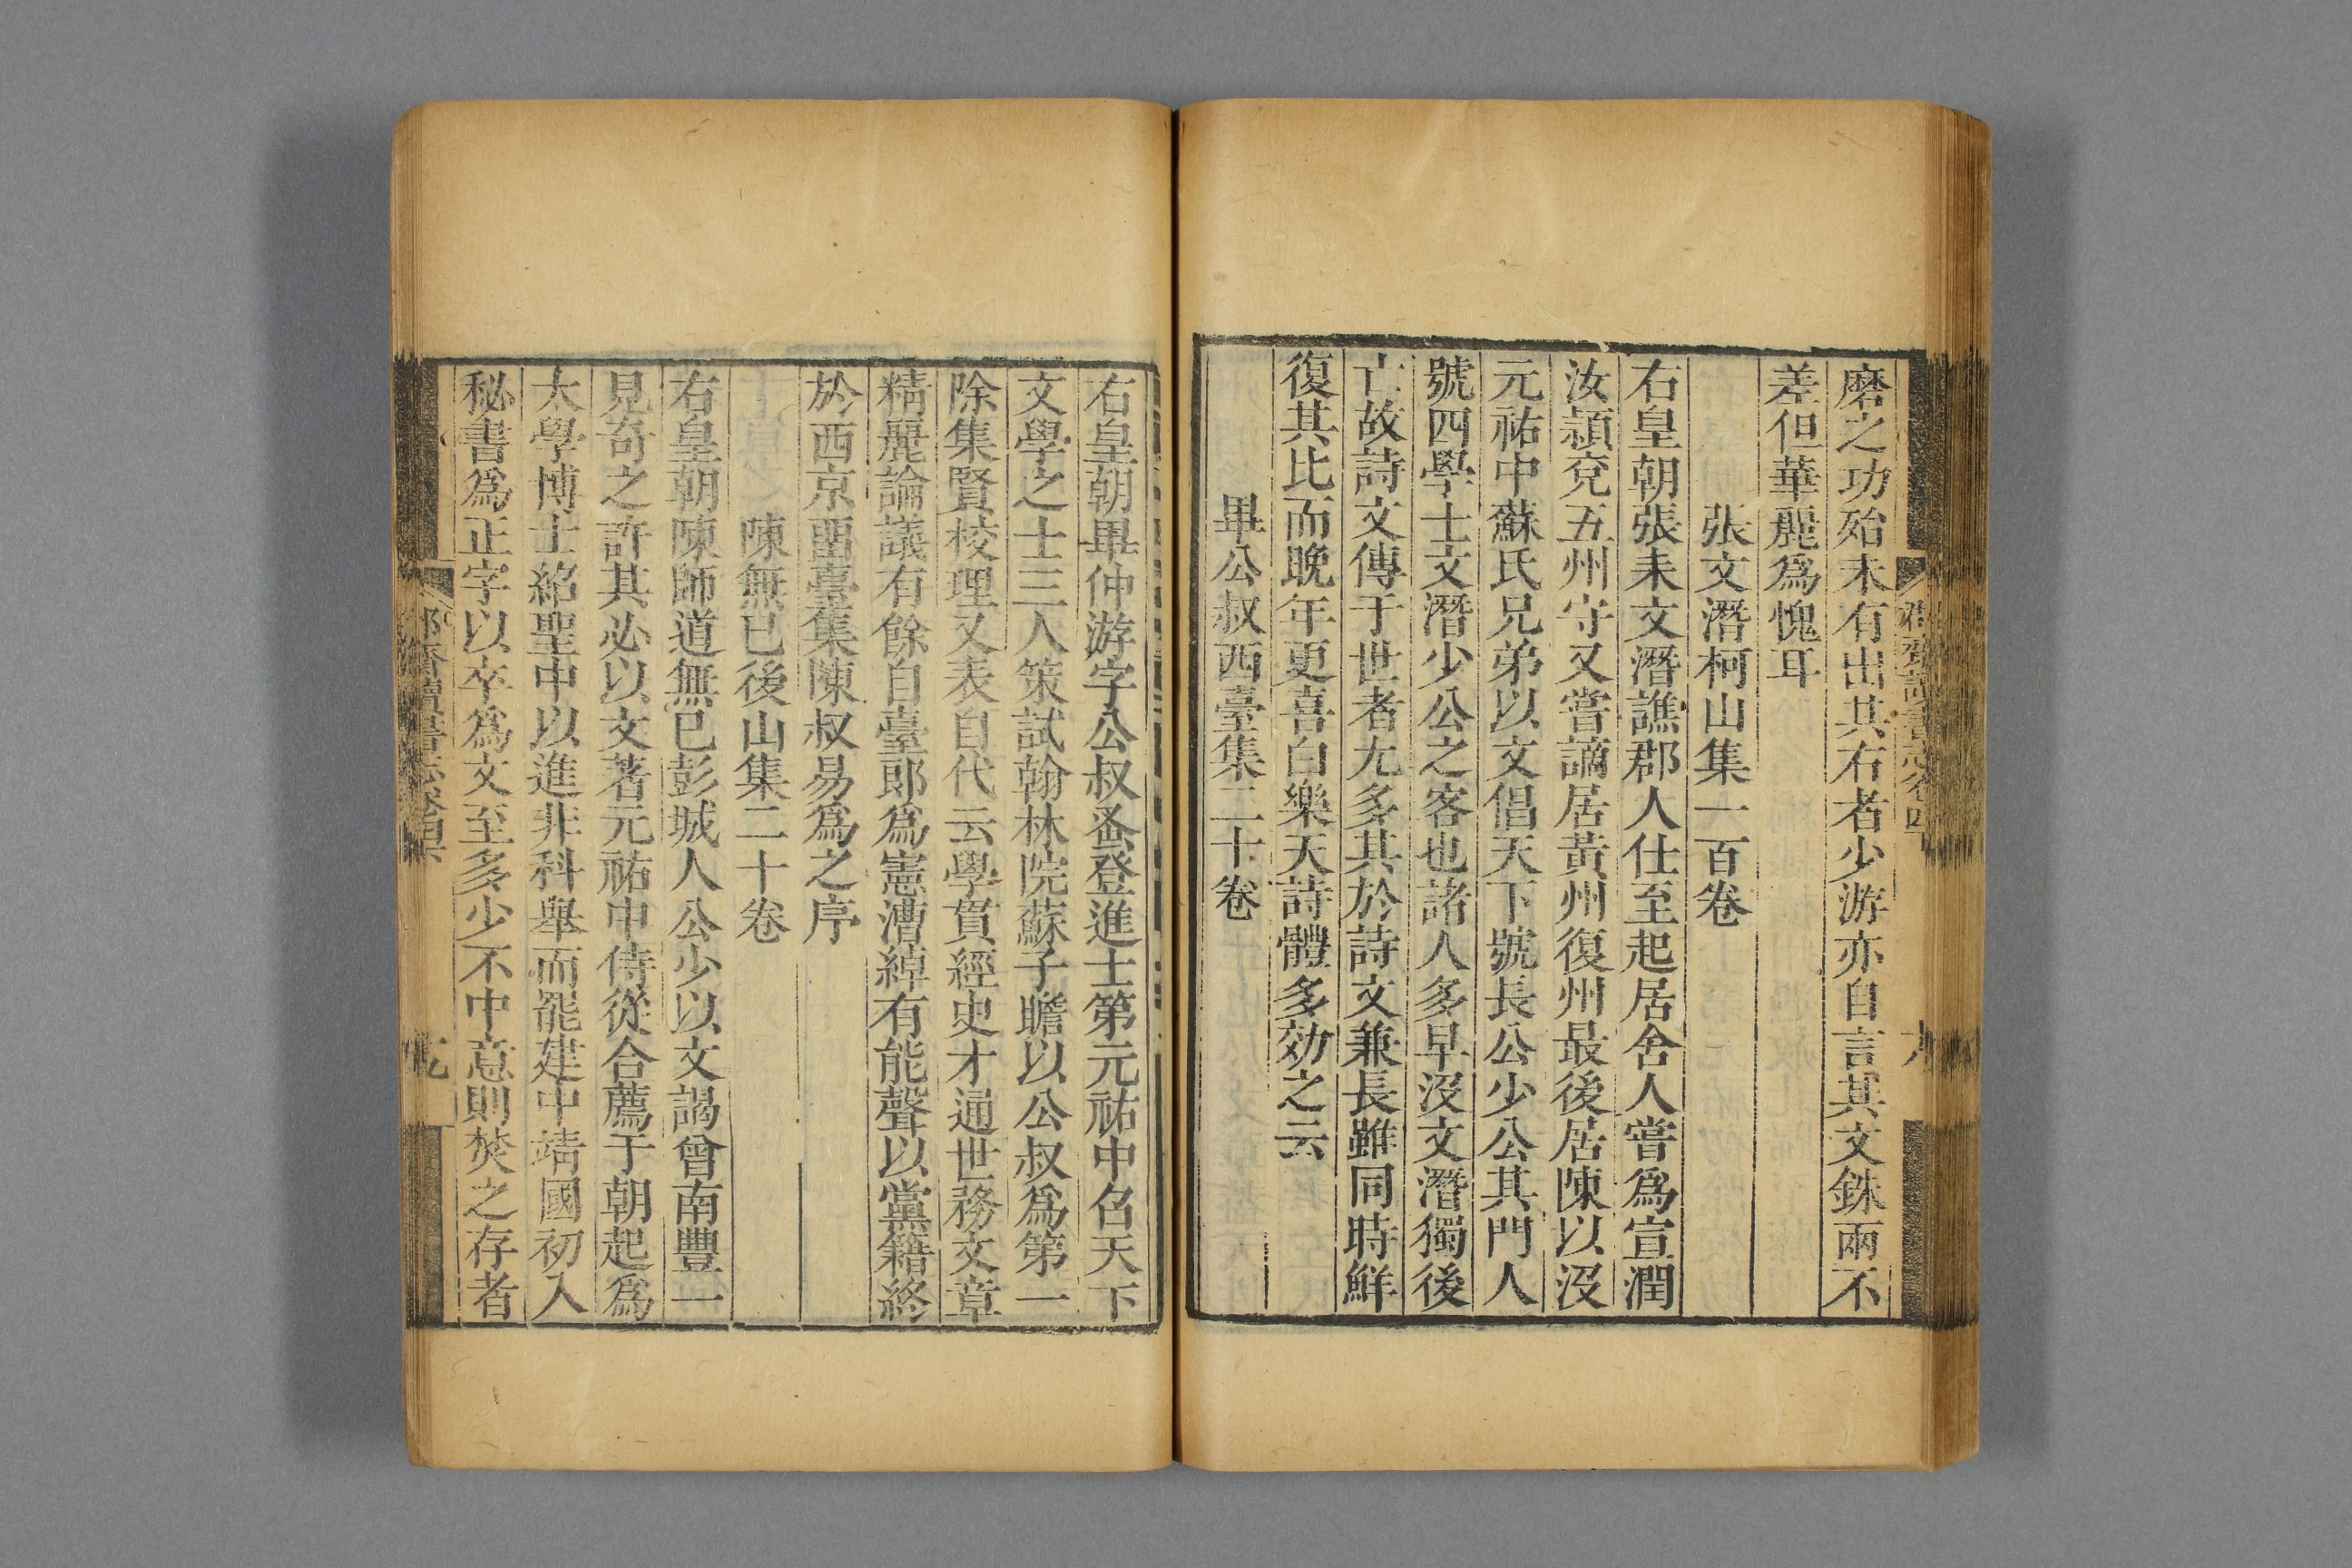 磨之功殆未有出其右者少游亦自言其文銖兩不
差但華麗爲愧耳
張文潛柯山集一百卷
右皇朝張耒文潛譙郡人仕至起居舍人嘗爲宣潤
汝潁兗五州守又嘗謫居黃州復州最後居陳以沒
元祐中蘇氏兄弟以文倡天下號長公少公其門人
號四學士文潛少公之客也諸人多早沒文潛獨後
亡故詩文傳于世者尤多其於詩文兼長雖同時鮮
復其比而晚年更喜白樂天詩體多効之云
畢公叔西臺集二十卷
右皇朝畢仲游字公叔蚤登進士第元祐中召天下
文學之士三人策試翰林院蘇子瞻以公叔爲第一
除集賢校理又表自代云學貫經史才通世務文章
精麗論議有餘自臺郞爲憲漕綽有能聲以黨籍終
於西京畱臺集陳叔易爲之序
陳無已後山集二十卷
右皇朝陳師道無已彭城人公少以文謁曾南豐一
見奇之許其必以文著元祐中侍從合薦于朝起爲
太學博士紹聖中以進非科舉而罷建中靖國初入
秘書爲正字以卒爲文至多少不中意則焚之存者
九